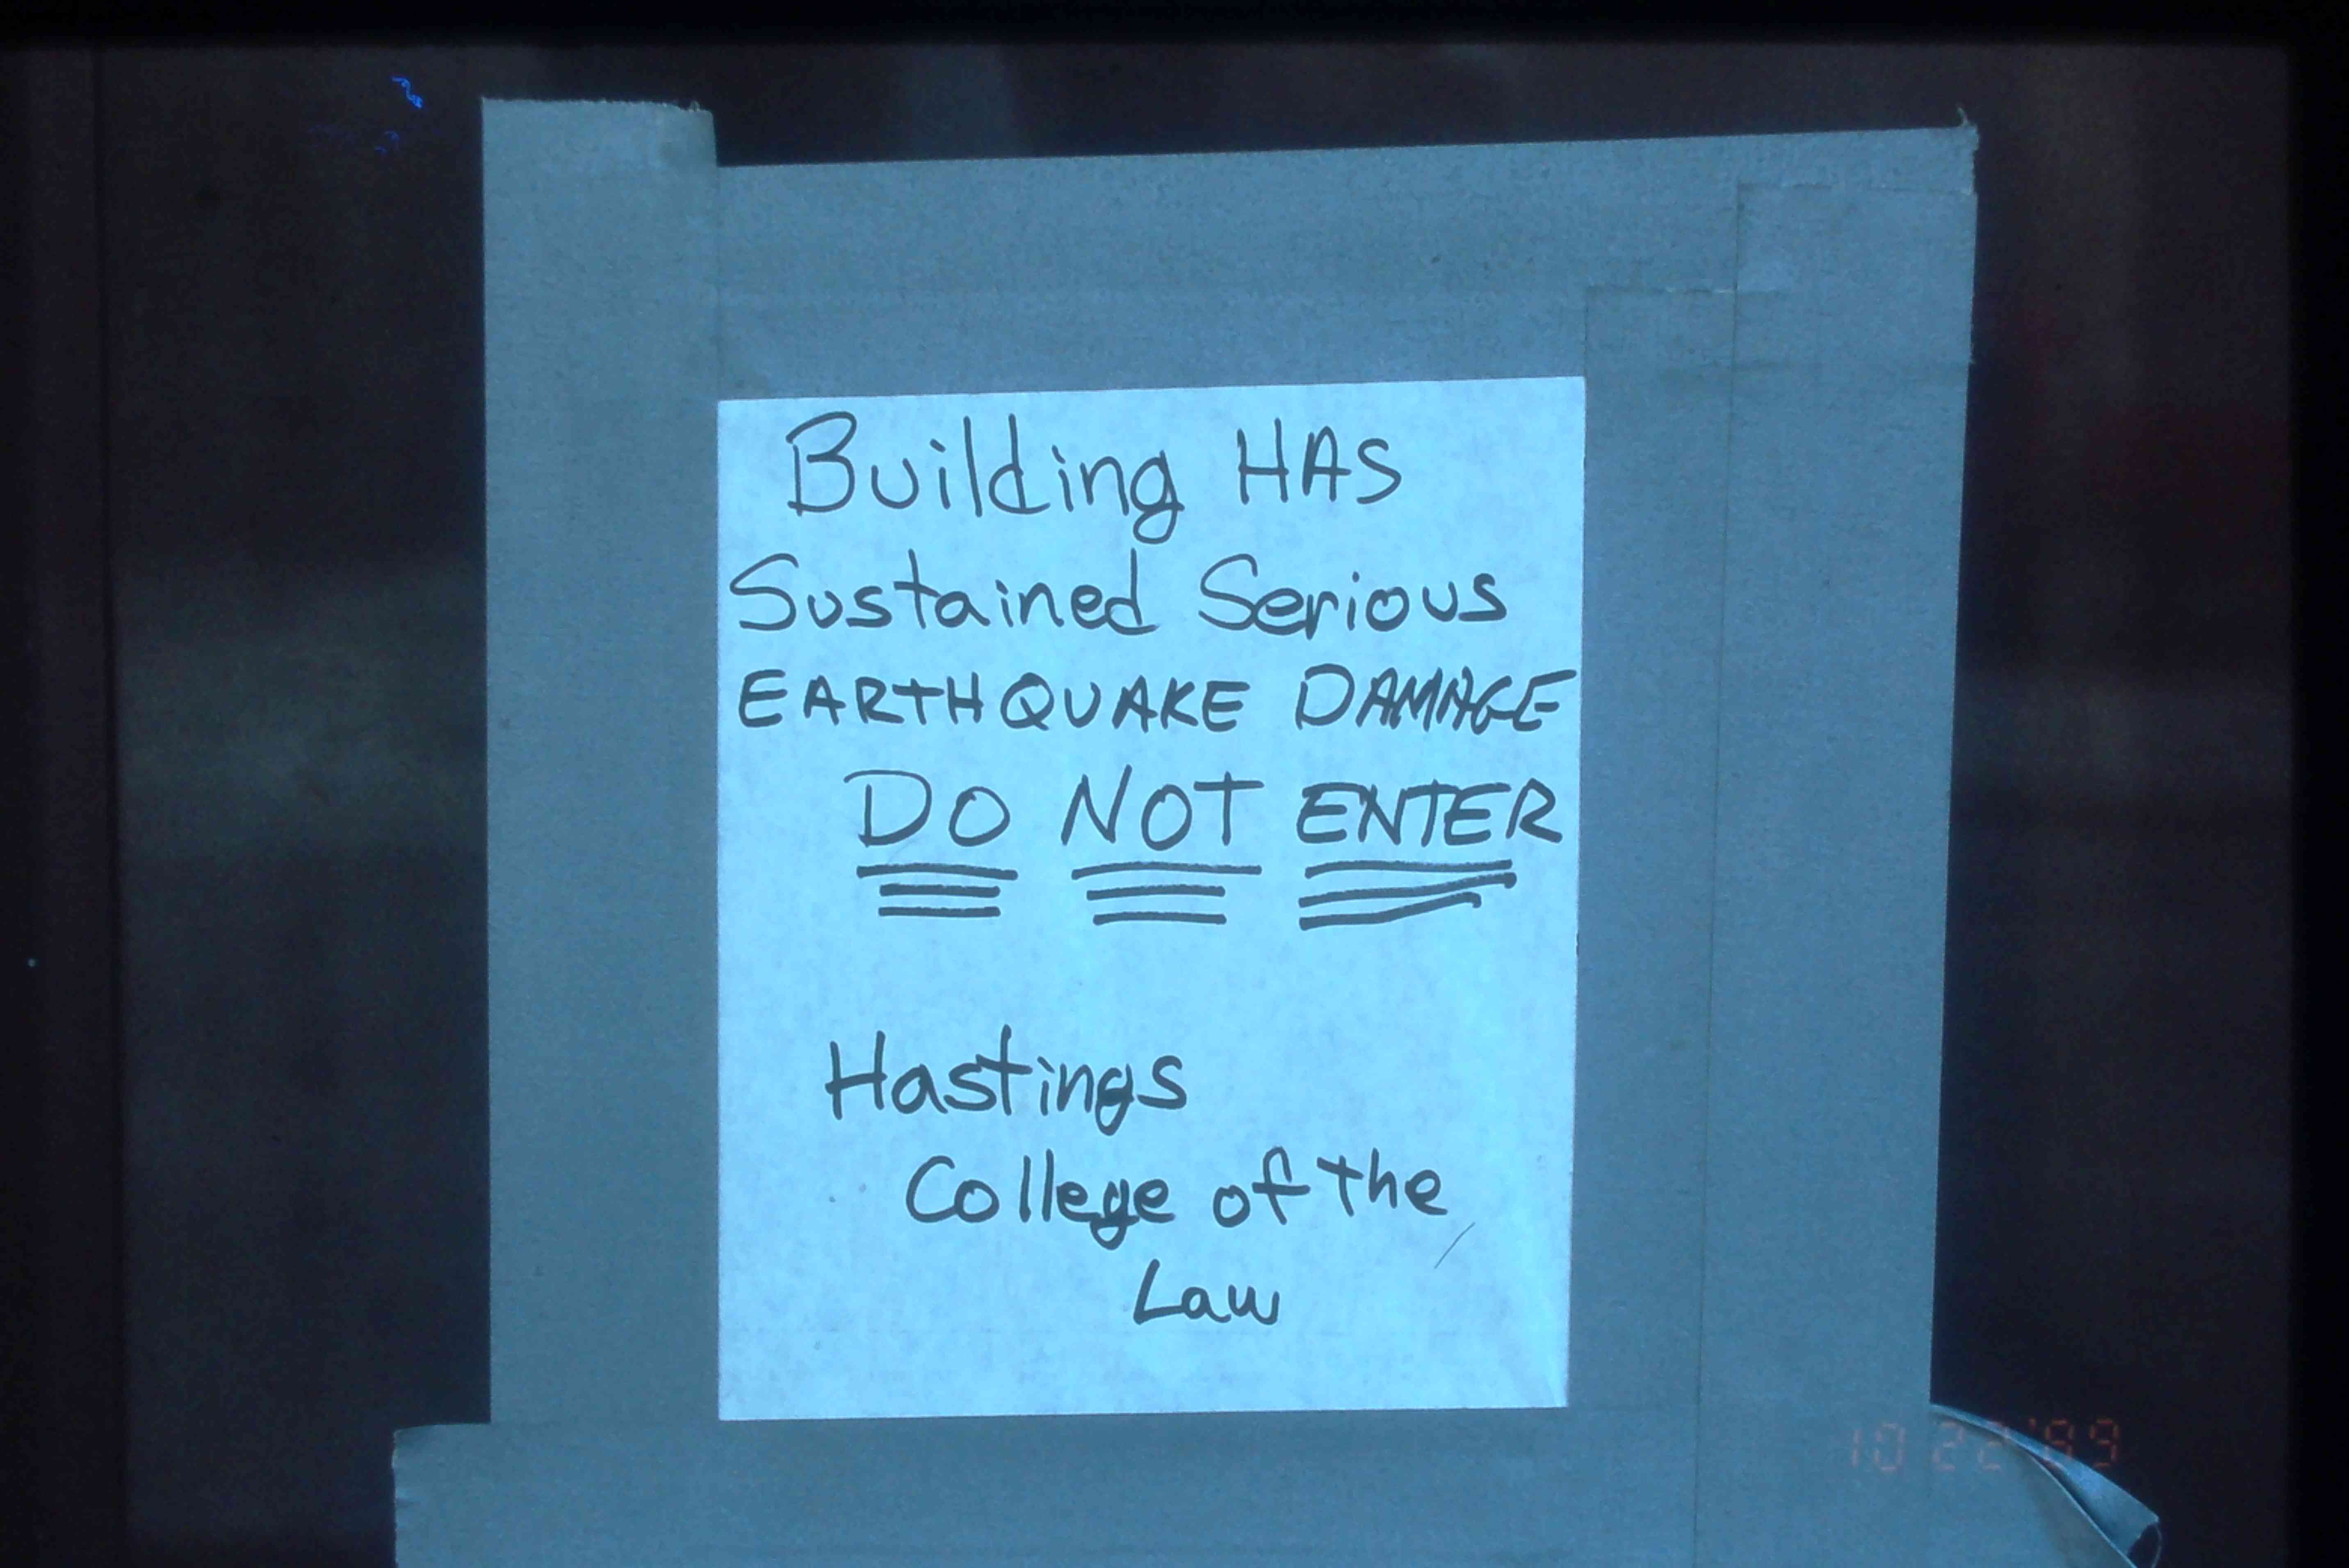 Building HAS
Sustained Serious
EARTHQUAKE DAMAGE
DO NOT ENTER
Hastings
College of the
Law
10 22 '89